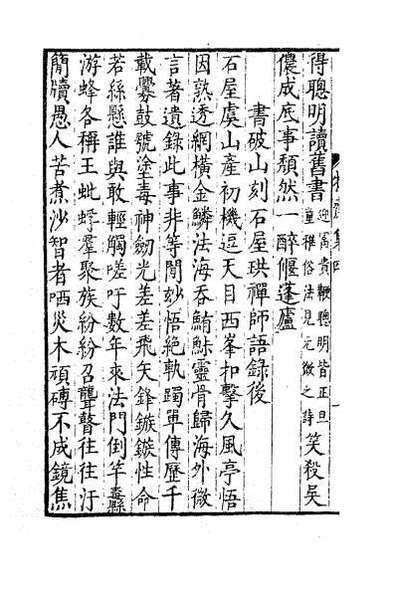 得聰明讀舊書迎富貴鞭聰明皆正旦童稚俗法見元微之詩笑殺吳
儂成底事頹然一醉偃蓬廬
書破山刻石屋珙禪師語錄後
石屋虞山產初機逗天目西峯扣擊久風亭悟
因熟透網橫金鱗法海吞鮪鮇靈骨歸海外微
言著遺錄此事非等閒妙悟絕軌躅單傳歷千
載爨鼓號塗毒神劒光差差飛矢鋒鏃鏃性命
若絲懸誰與敢輕觸嗟吁數年來法門倒竿纛
游蜂各稱王蚍蜉羣聚族紛紛召聾瞽往往汙
簡牘愚人苦煮沙智者哂災木頑磚不成鏡焦